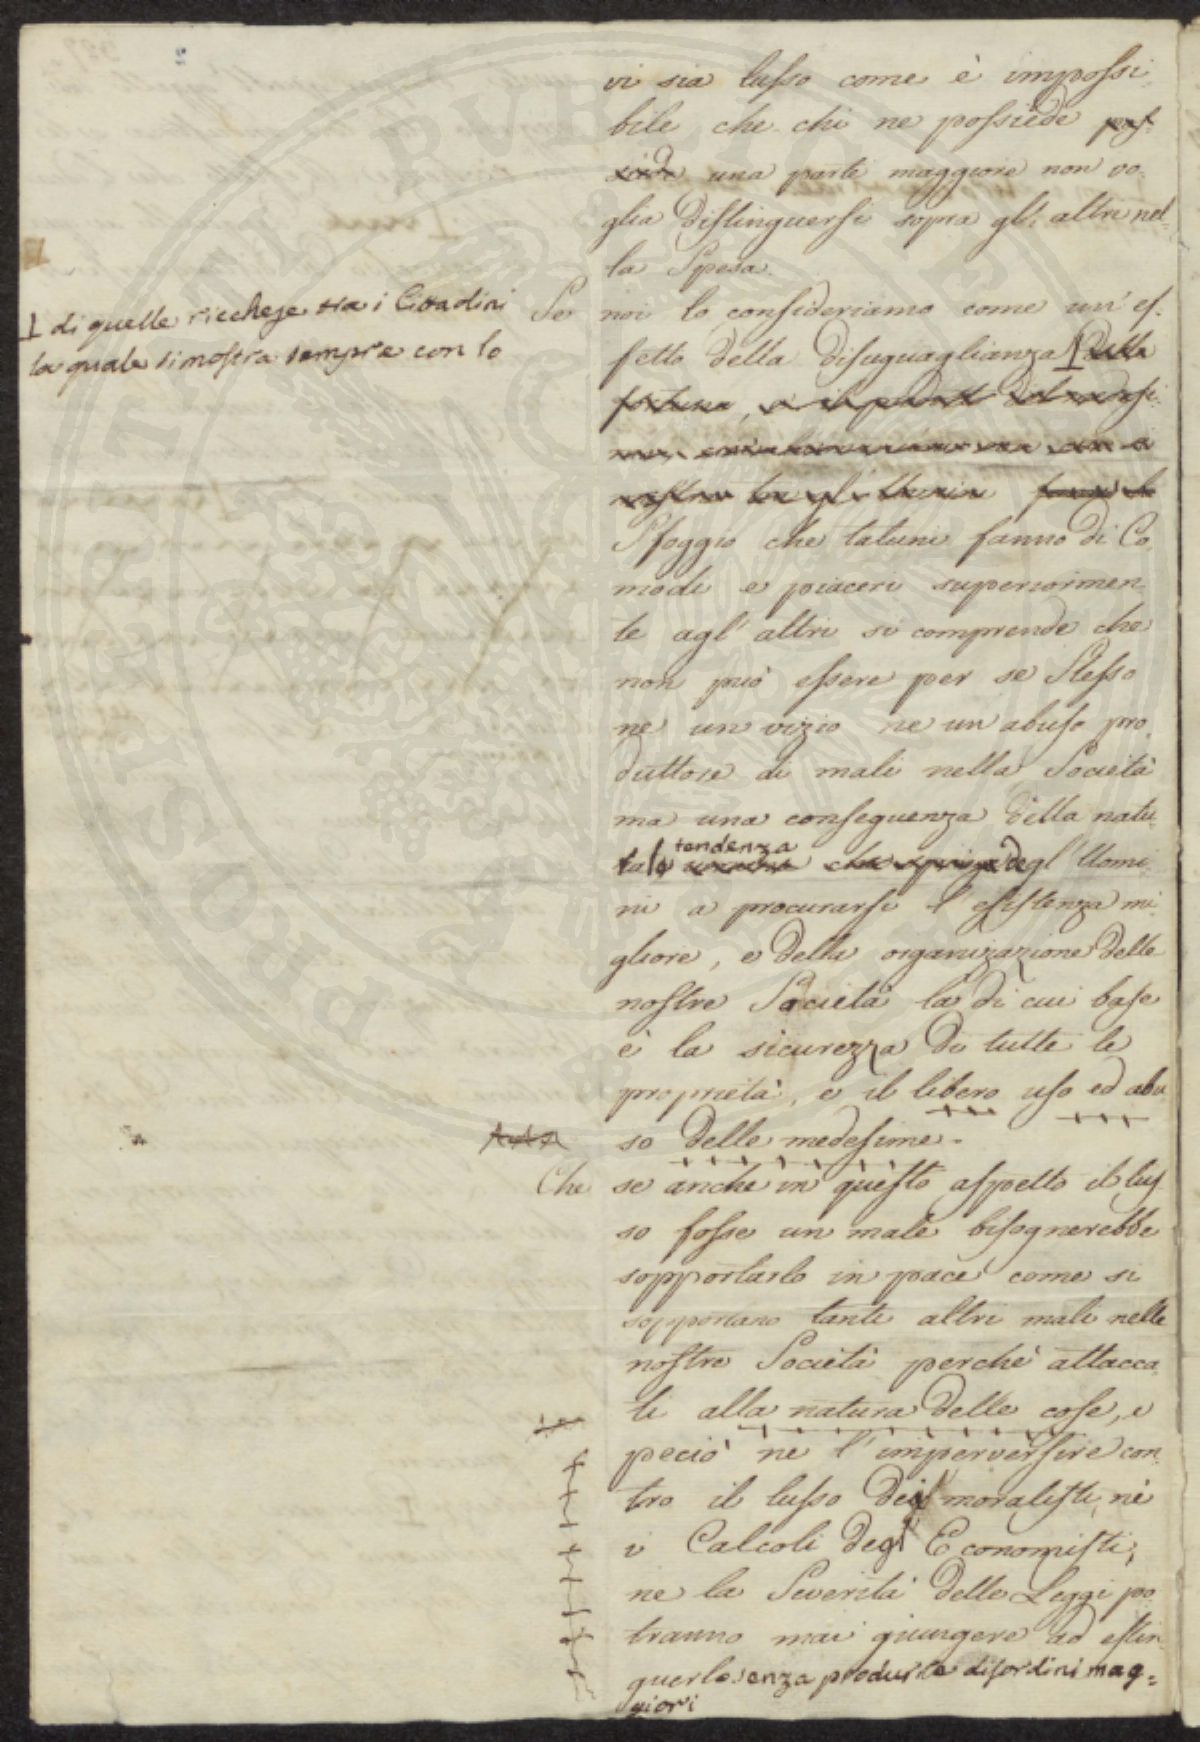 vi sia lusso come è impossi
bile che chi ne possiede pos-
siede una parte maggiore non vo-
glia distinguersi sopra gl'altri nel-
la Spesa.
Se noi lo consideriamo come un'ef-
fetto della disuguaglianza della
I di quelle riccheze tra i Cittadini
la quale si mostra sempre con lo
fortuna
Sfoggio che taluni fanno di Co
modi e piaceri superiormen
te agl'altri si comprende che
non può essere per se Stesso
ne un vizio ne un abuso pro
duttore di mali nella Società
ma una conseguenza della natu-
rale tendenza degl'Uomi
ni a procurarsi l'esistenza mi
gliore, e della organizazione delle
nostre Società la di cui base
è la sicurezza di tutte le
proprietà, e il libero uso ed abu
so delle medesime.
Che se anche in questo aspetto il lus
so fosse un male bisognerebbe
sopportarlo in pace come si
sopportano tanti altri mali nelle
nostre Società perchè attacca
ti alla natura delle cose, e
peciò ne l'imperversire con
tro il lusso dei moralisti, nè
i Calcoli degl'Economisti,
ne la Severità delle Leggi po
tranno mai giungere ad estin
guerlo senza produrre disordini mag-
giori